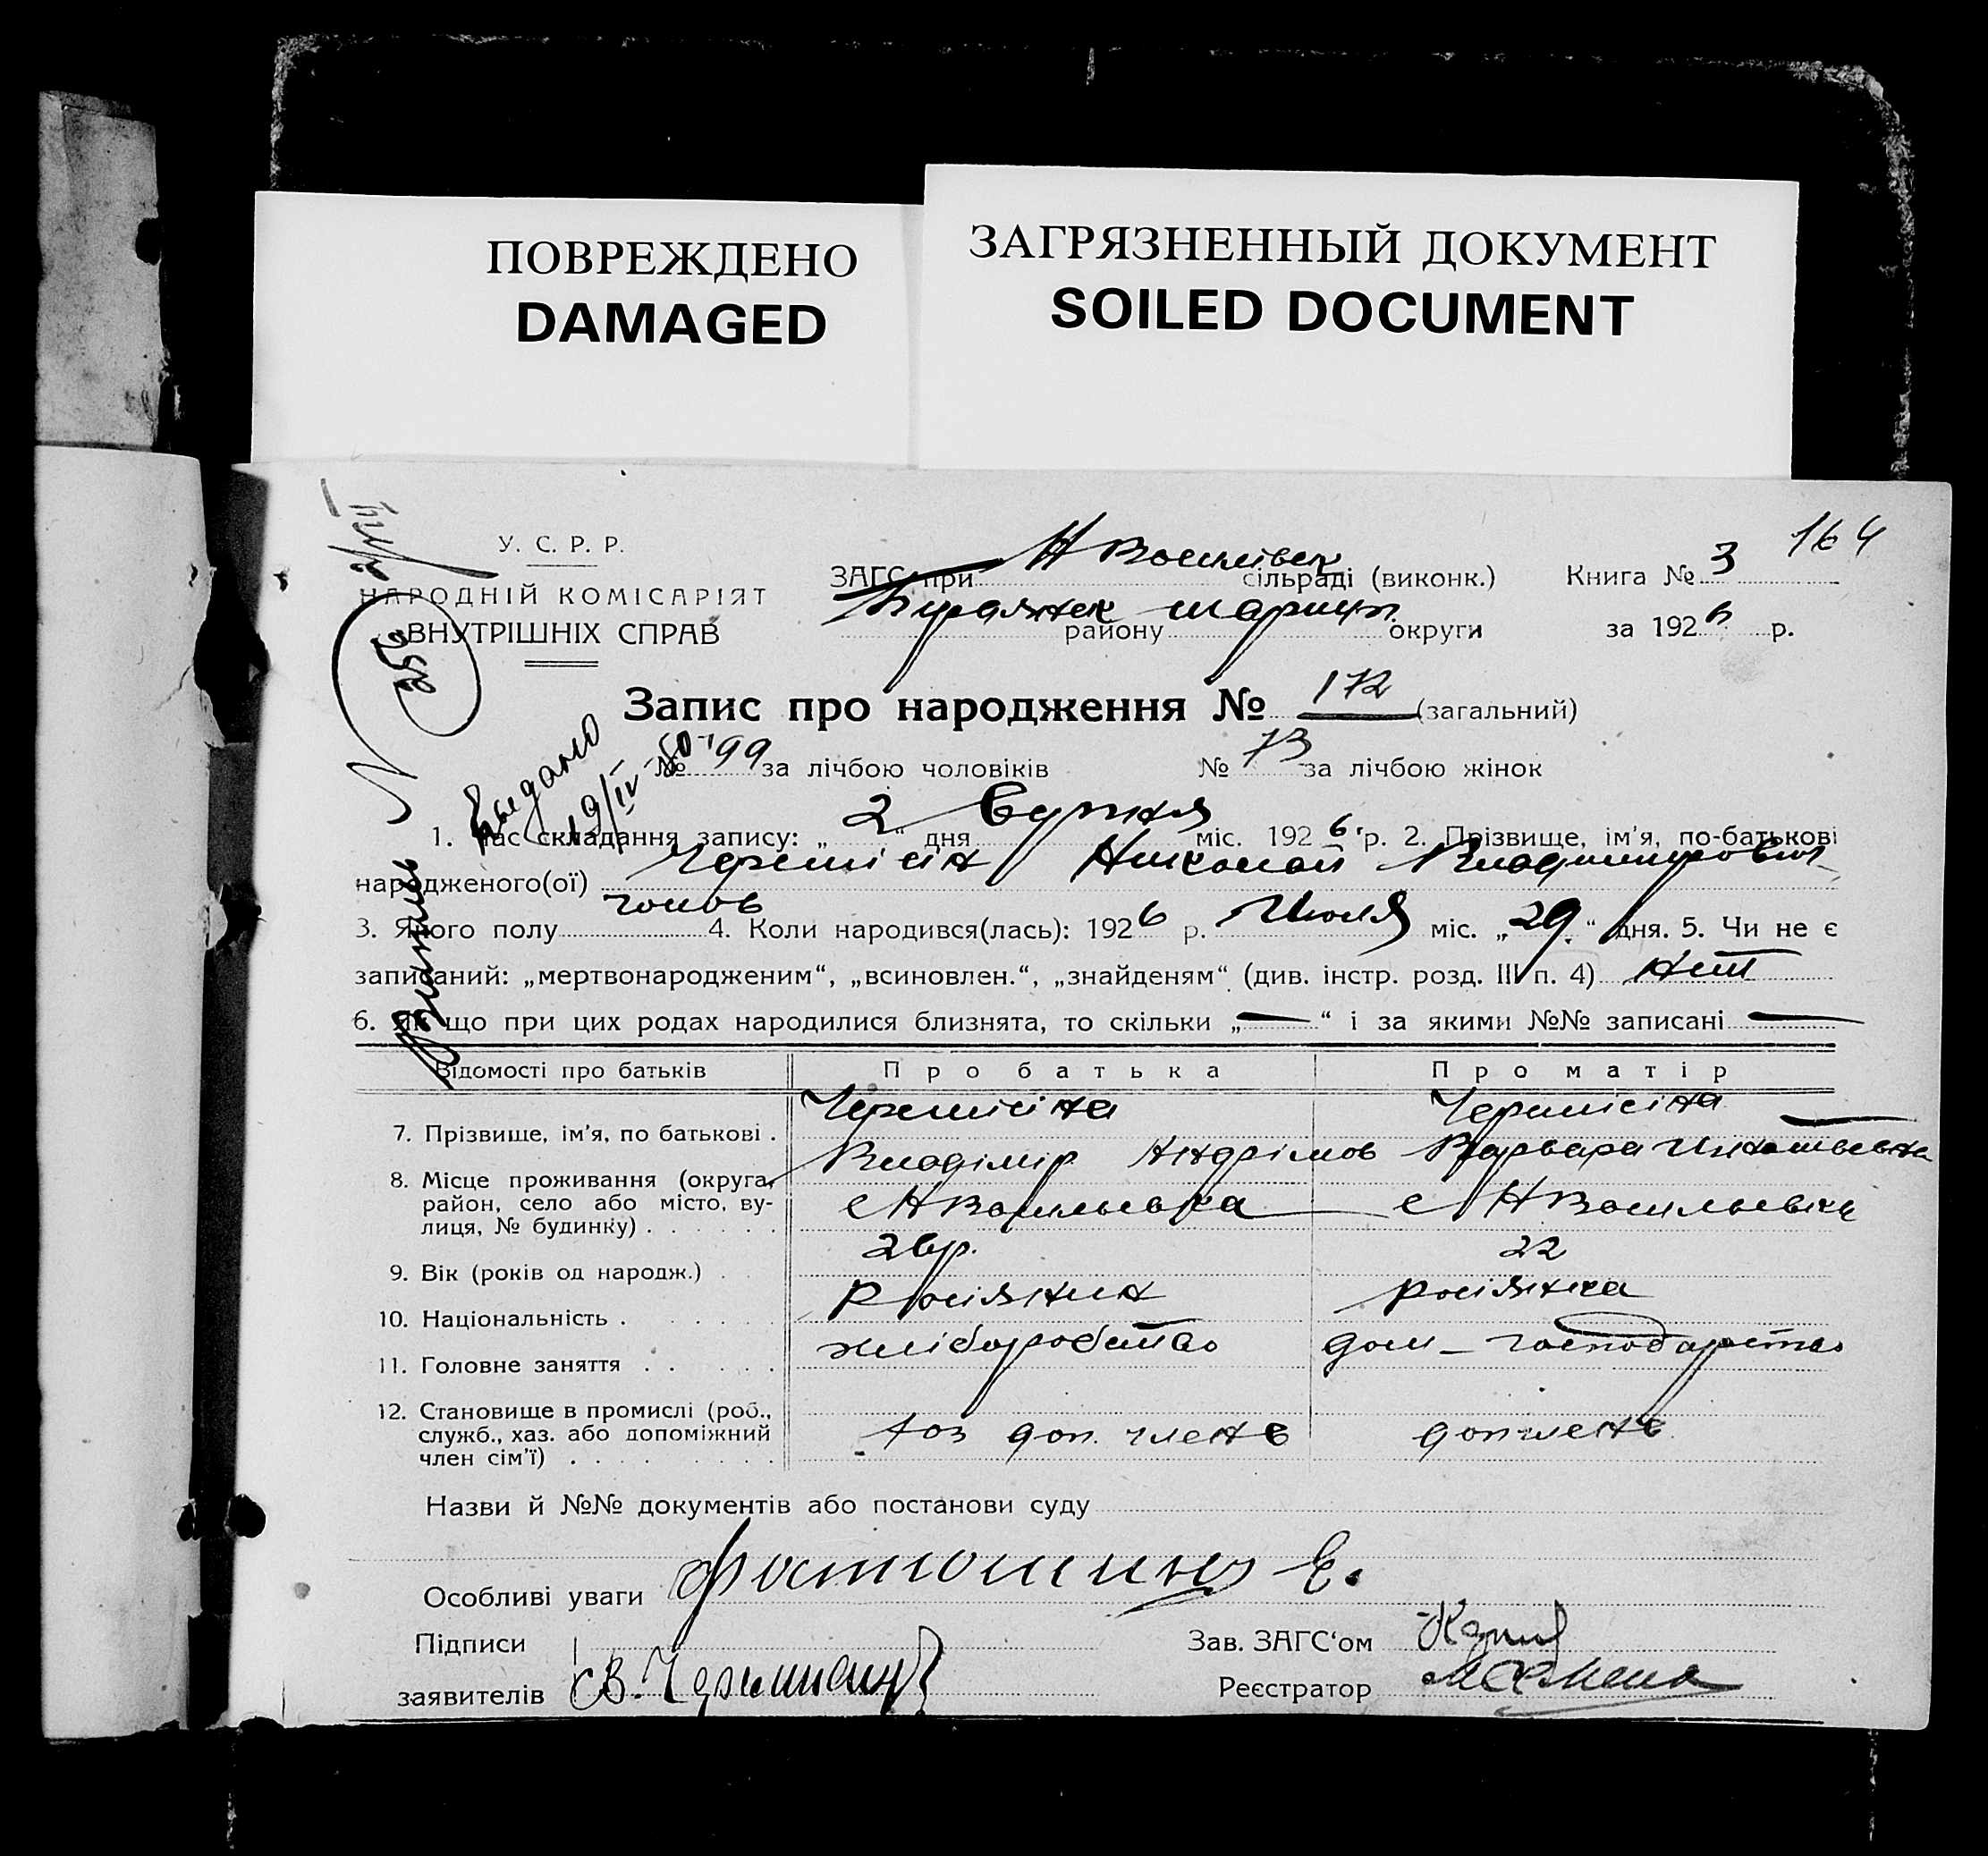 ПОВРЕЖДЕНО
DAMAGED
ЗАГРЯЗНЕННЫЙ ДОКУМЕНТ
SOILED DOCUMENT
164
У. С. Р. Р.
НАРОДНІЙ КОМІСАРІЯТ
ВНУТРІШНІХ СПРАВ
ЗАГС при Н Васілівск сільраді (виконк.)
района округи
Книга № 3
за 1926 р.
Запис про народження № 172 (загальний)
№ 99 за лічбою чоловіків № 73 за лічбою жінок
Выдано
19/IV-80
1. Час складання запису: „2“ дня Серпня міс. 1926 р. 2. Прізвище, ім’я, по-батькові
народженого(ої) Черемісін Николай Владимирович
3. Якого полу чолов 4. Коли народився(лась): 1926 р. Июля міс. „29“ дня. 5. Чи не є
записаний: „мертвонародженим“, „всиновлен.“, „знайденям“ (див. інстр. розд. III п. 4) ніт
6. Як що при цих родах народилися близнята, то скільки „—“ і за якими №№ записані —
Відомості про батьків Про батька Про матір
7. Прізвище, ім’я, по батькові . Черемісіна Владімір Андріїов Черемісіна Варвара Игнатьевна
8. Місце проживання (округа, район, село або місто, вулиця, № будинку) . с Н Васильевка с Н Васильевка
9. Вік (років од народж.) . 26 р. 22
10. Національність . росіянин росіянка
11. Головне заняття . хліборобство дом – господарство
12. Становище в промислі (роб., служб., хаз. або допоміжний член сім’ї) . хоз доп. членв допчленв
Назви й №№ документів або постанови суду
Особливі уваги
Підписи
заявителів В. Черемисин
Зав. ЗАГС‘ом
Реєстратор